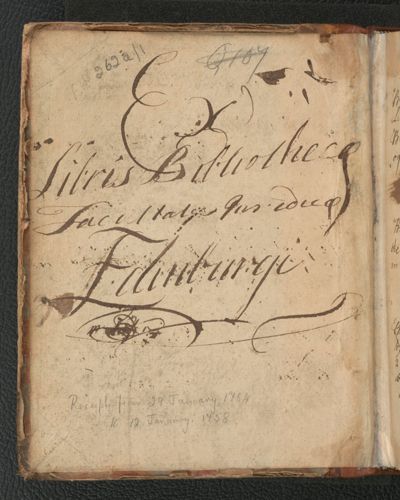 262a/1
Q107
Ex
Libris Bibliothecæ
Facultatis Juridicæ
Edinburgi
Receipts from 29 January, 1454
to 12 January. 1458.